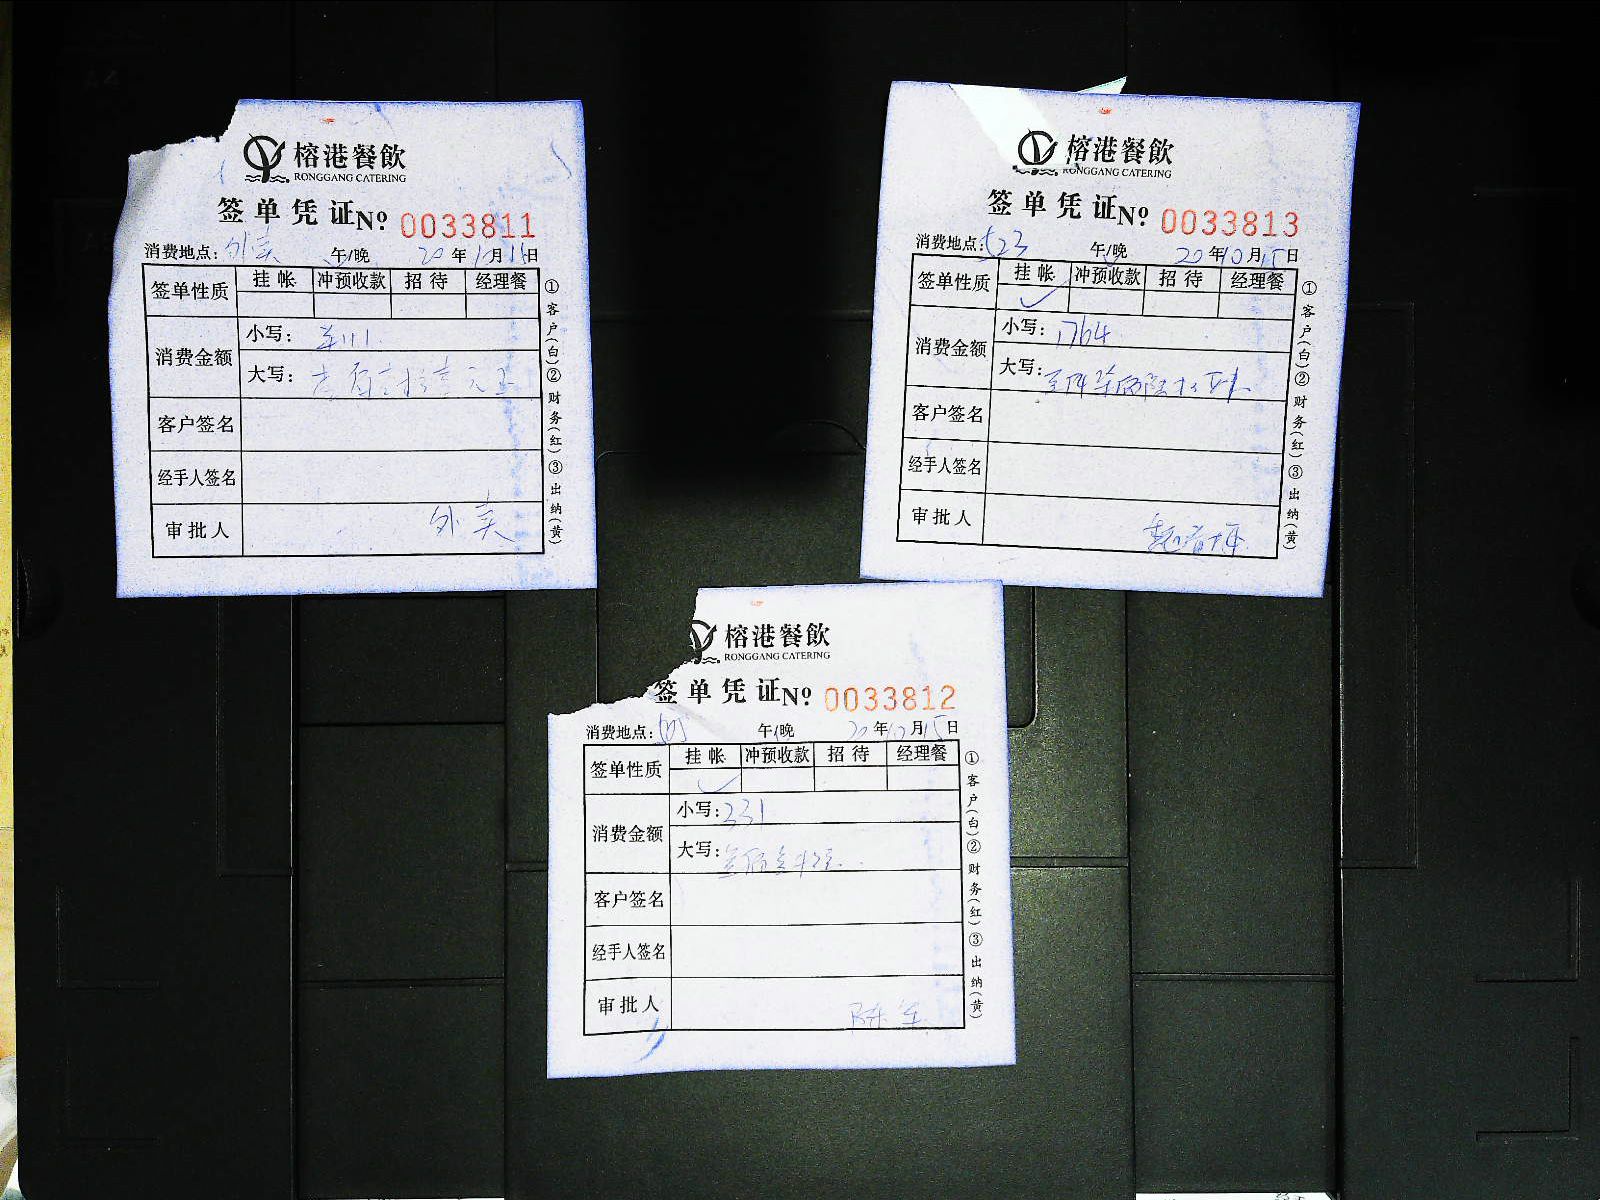 榕港餐飲
RONGGANG CATERING
签单凭证№ 0033811
消费地点: 外卖 午/晚 20年10月15日
签单性质 挂帐 冲预收款 招待 经理餐
消费金额
小写:
大写:
客户签名
经手人签名
审批人 外卖
①客户(白)②财务(红)③出纳(黄)
榕港餐飲
RONGGANG CATERING
签单凭证№ 0033813
消费地点: 523 午/晚 20年10月15日
签单性质 挂帐 冲预收款 招待 经理餐
消费金额
小写: 1764
大写:
客户签名
经手人签名
审批人
①客户(白)②财务(红)③出纳(黄)
榕港餐飲
RONGGANG CATERING
签单凭证№ 0033812
消费地点: 午/晚 20年10月15日
签单性质 挂帐 冲预收款 招待 经理餐
消费金额
小写: 331
大写:
客户签名
经手人签名
审批人 陈军
①客户(白)②财务(红)③出纳(黄)